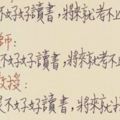 不好好讀書,將來就考不上
師:
不好好讀書,將來就考不
教授:
不好好讀書,將來就找不